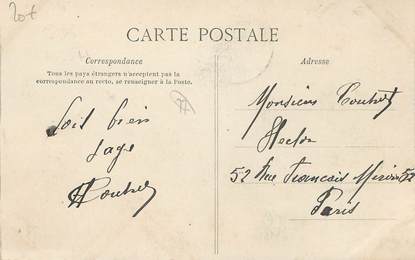 20+
CARTE POSTALE
Correspondance
Tous les pays étrangers n'acceptent pas la
correspondance au recto, se renseigner à la Poste.
Sois bien
sage
Adresse
Monsieur
Hector
52 Rue François Miron 52
Paris